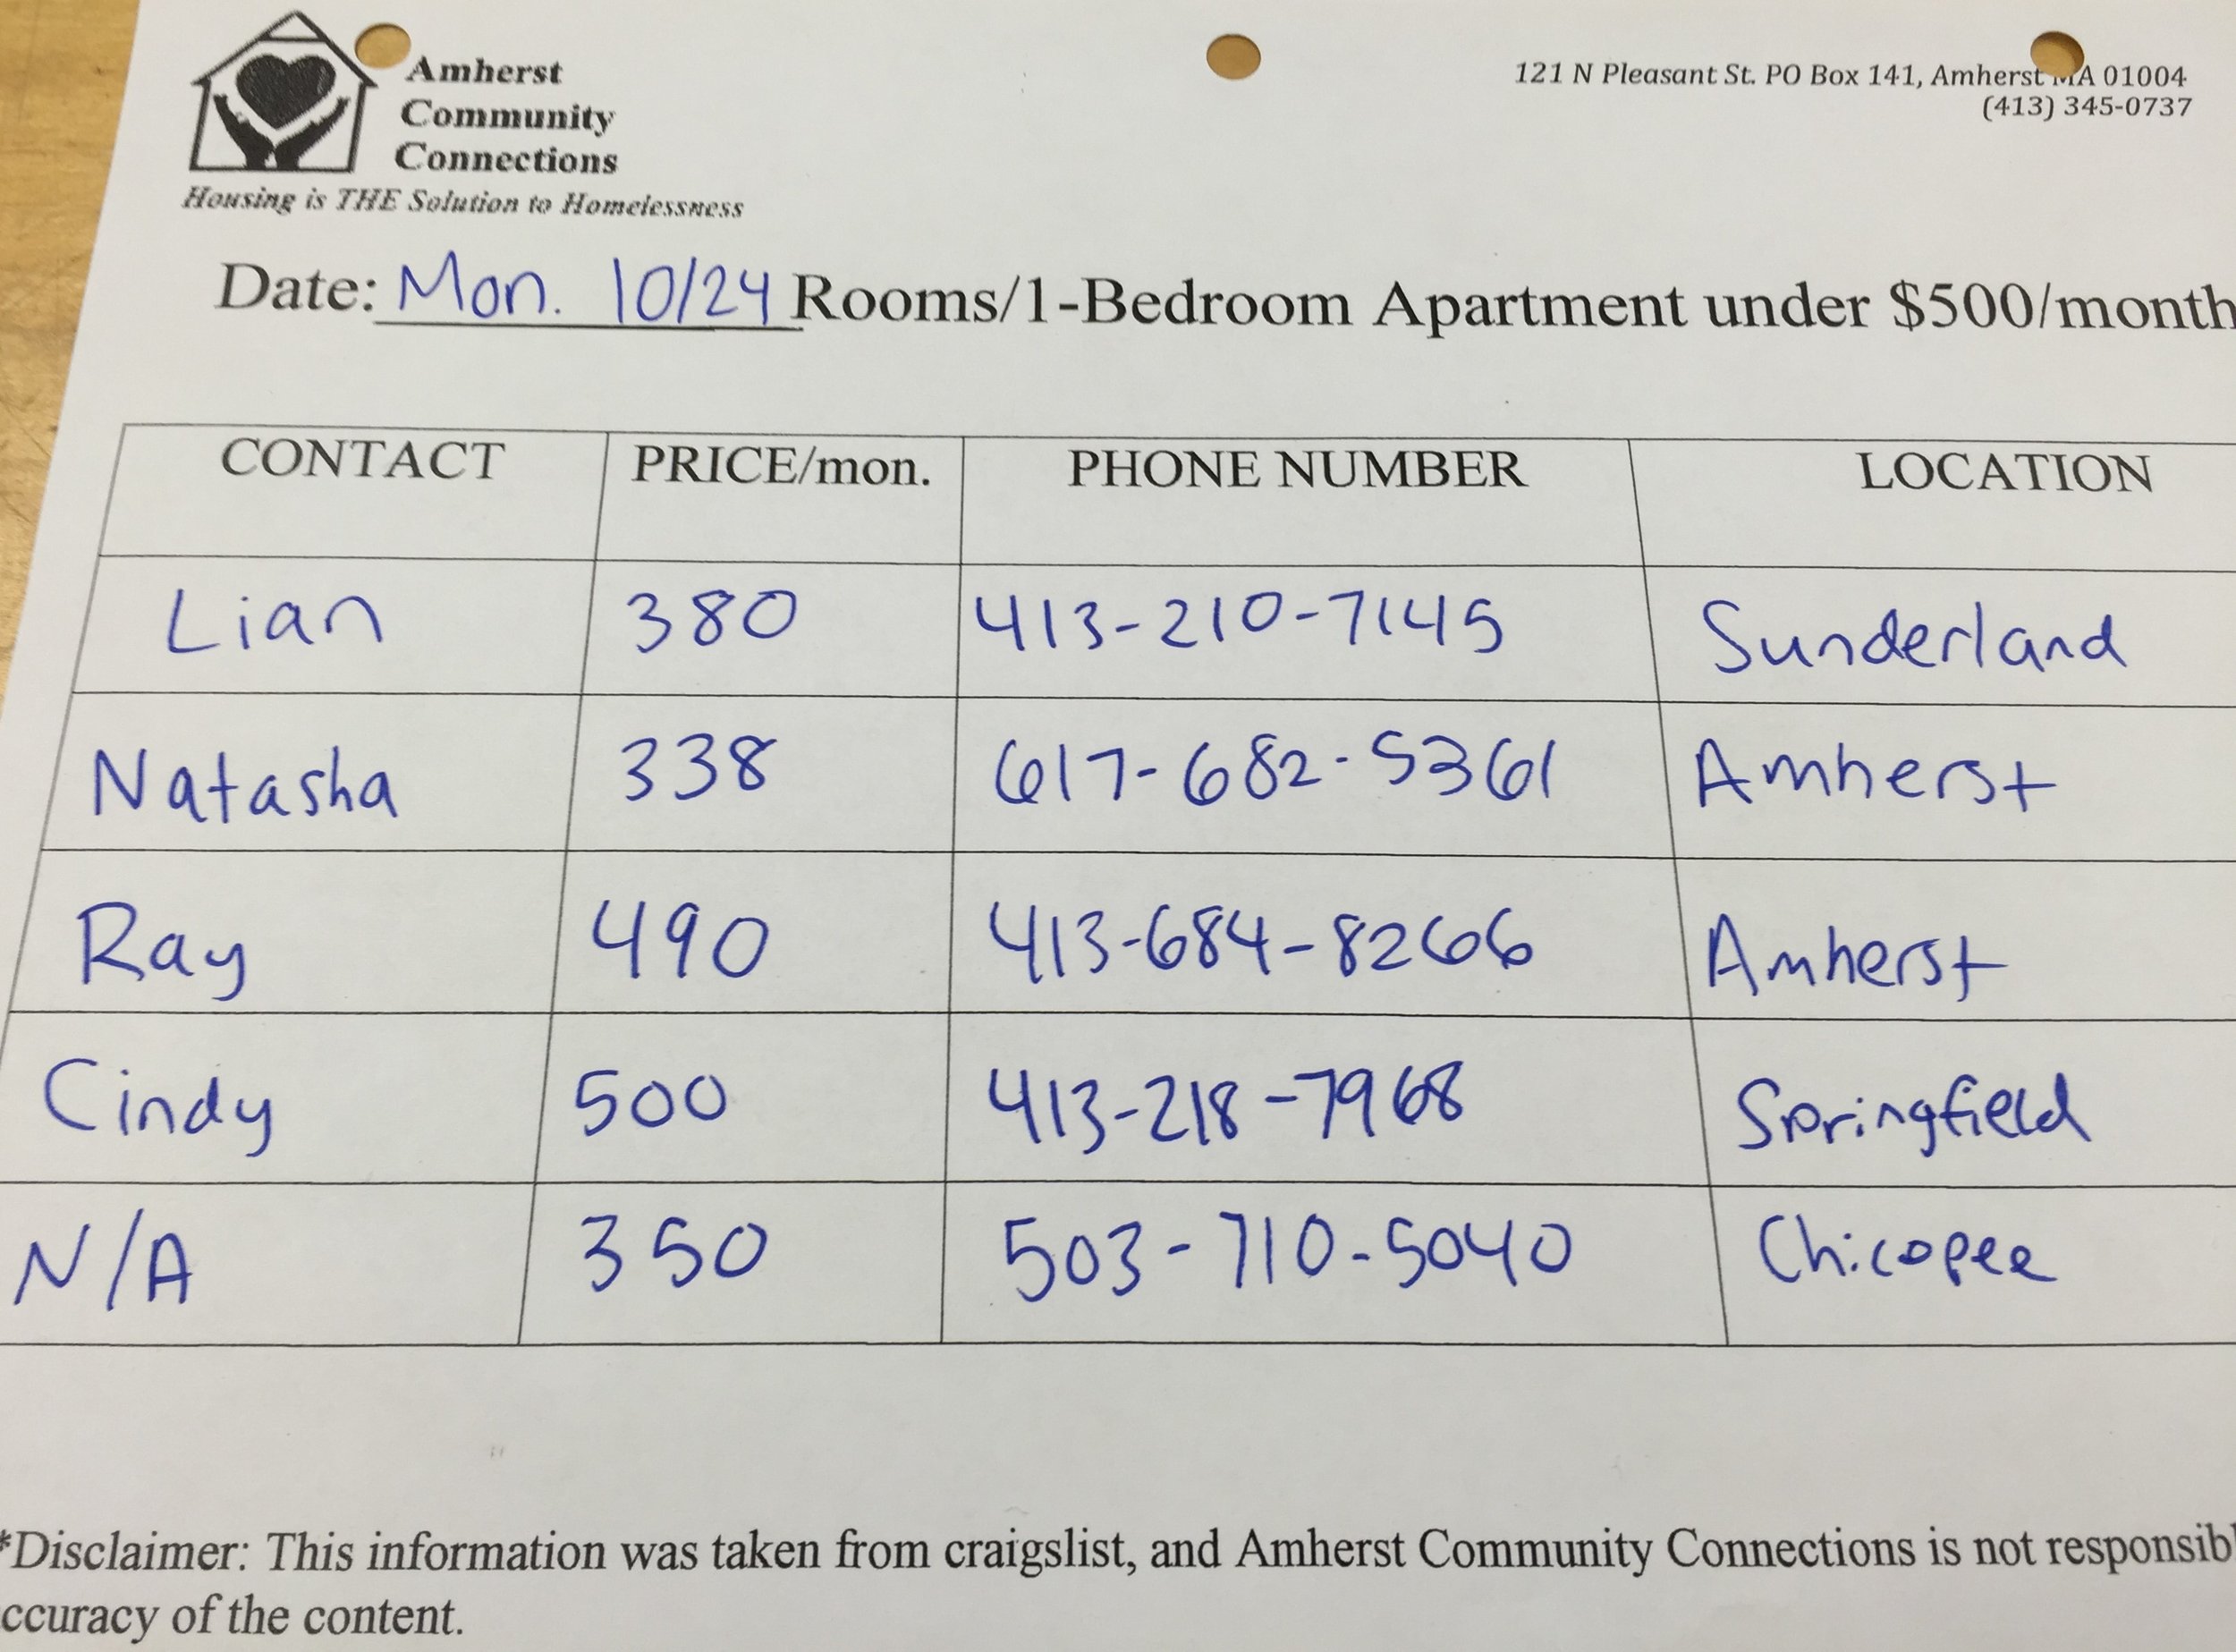 Amherst
Community
Connections
Housing is THE Solution to Homelessness
121 N Pleasant St. PO Box 141, Amherst MA 01004
(413) 345-0737
Date: Mon. 10/24 Rooms/1-Bedroom Apartment under $500/month
CONTACT PRICE/mon. PHONE NUMBER LOCATION
Lian 380 413-210-7145 Sunderland
Natasha 338 617-682-5361 Amherst
Ray 490 413-684-8266 Amherst
Cindy 500 413-218-7968 Springfield
N/A 350 503-710-5040 Chicopee
*Disclaimer: This information was taken from craigslist, and Amherst Community Connections is not responsib
ccuracy of the content.